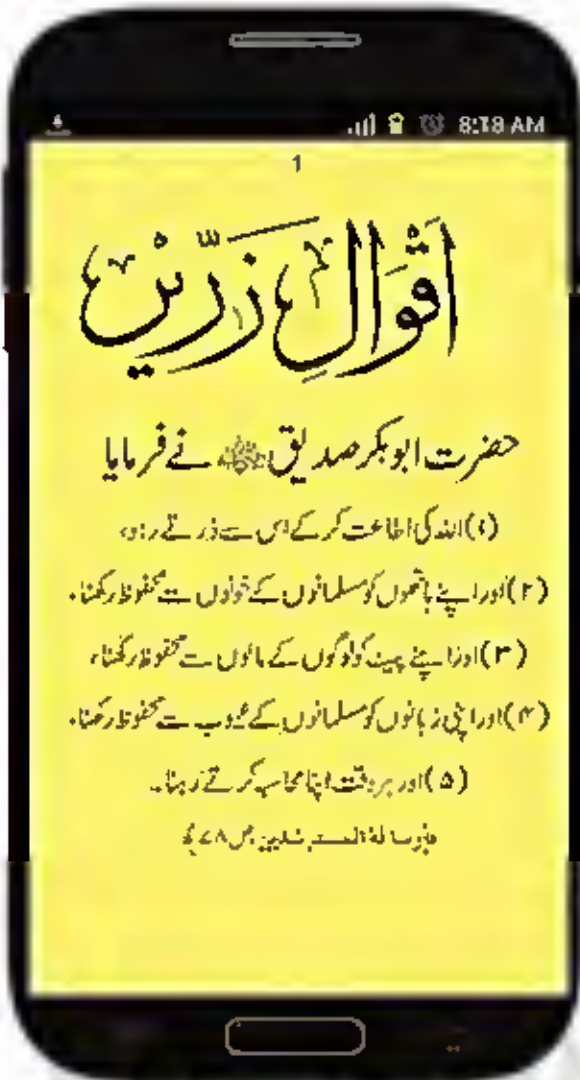 8:18 AM
1
اَقْوَالِ زَرِّیں
حضرت ابوبکر صدیق رضی اللہ عنہ نے فرمایا
(۱) اللہ کی اطاعت کر کے اس سے ڈرتے رہو،
(۲) اور اپنے ہاتھوں کو مسلمانوں کے خونوں سے محفوظ رکھنا،
(۳) اور اپنے پیٹ کو لوگوں کے مالوں سے محفوظ رکھنا،
(۴) اور اپنی زبانوں کو مسلمانوں کے عیوب سے محفوظ رکھنا،
(۵) اور ہر وقت اپنا محاسبہ کرتے رہنا۔
ص ۷۸